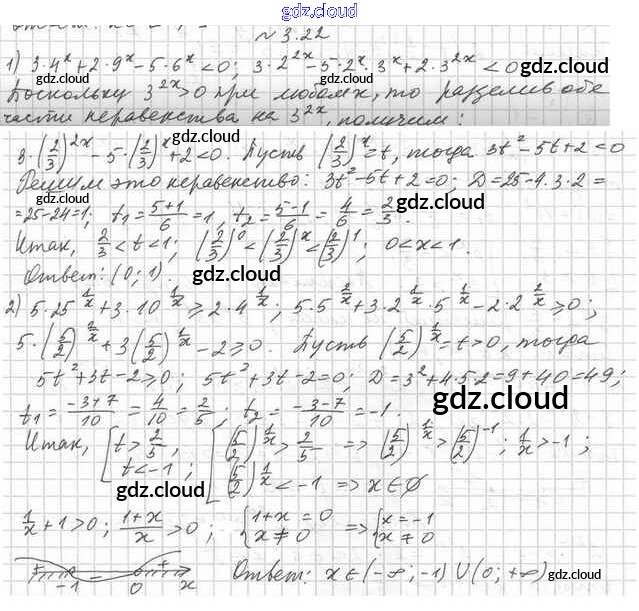 gdz.cloud
№ 3.22
1) 3·4^x + 2·9^x − 5·6^x < 0; 3·2^{2x} − 5·2^x·3^x + 2·3^{2x} < 0
gdz.cloud gdz.cloud gdz.cloud
Поскольку 3^{2x} > 0 при любом x, то разделив обе
части неравенства на 3^{2x}, получим:
gdz.cloud
3·(2/3)^{2x} − 5·(2/3)^x + 2 < 0. Пусть (2/3)^x = t, тогда 3t² − 5t + 2 < 0
Решим это неравенство: 3t² − 5t + 2 = 0; D = 25 − 4·3·2 =
gdz.cloud
= 25 − 24 = 1; t₁ = (5+1)/6 = 1, t₂ = (5−1)/6 = 4/6 = 2/3.
gdz.cloud
Итак, 2/3 < t < 1; (2/3)^0 < (2/3)^x < (2/3)^1; 0 < x < 1.
Ответ: (0; 1).
gdz.cloud
2) 5·25^{1/x} + 3·10^{1/x} ⩾ 2·4^{1/x}; 5·5^{2/x} + 3·2^{1/x}·5^{1/x} − 2·2^{2/x} ⩾ 0;
5·(5/2)^{2/x} + 3(5/2)^{1/x} − 2 ⩾ 0. Пусть (5/2)^{1/x} = t > 0, тогда
5t² + 3t − 2 ⩾ 0; 5t² + 3t − 2 = 0; D = 3² + 4·5·2 = 9 + 40 = 49;
gdz.cloud
t₁ = (−3+7)/10 = 4/10 = 2/5; t₂ = (−3−7)/10 = −1.
Итак, [t > 2/5, [(5/2)^{1/x} > 2/5 => (5/2)^{1/x} > (5/2)^{−1}; 1/x > −1;
t < −1; (5/2)^{1/x} < −1 => x ∈ ∅
gdz.cloud
1/x + 1 > 0; (1+x)/x > 0; {1+x = 0 => {x = −1
x ≠ 0 x ≠ 0
+ − + −1 0 x
Ответ: x ∈ (−∞; −1) ∪ (0; +∞)
gdz.cloud gdz.cloud gdz.cloud